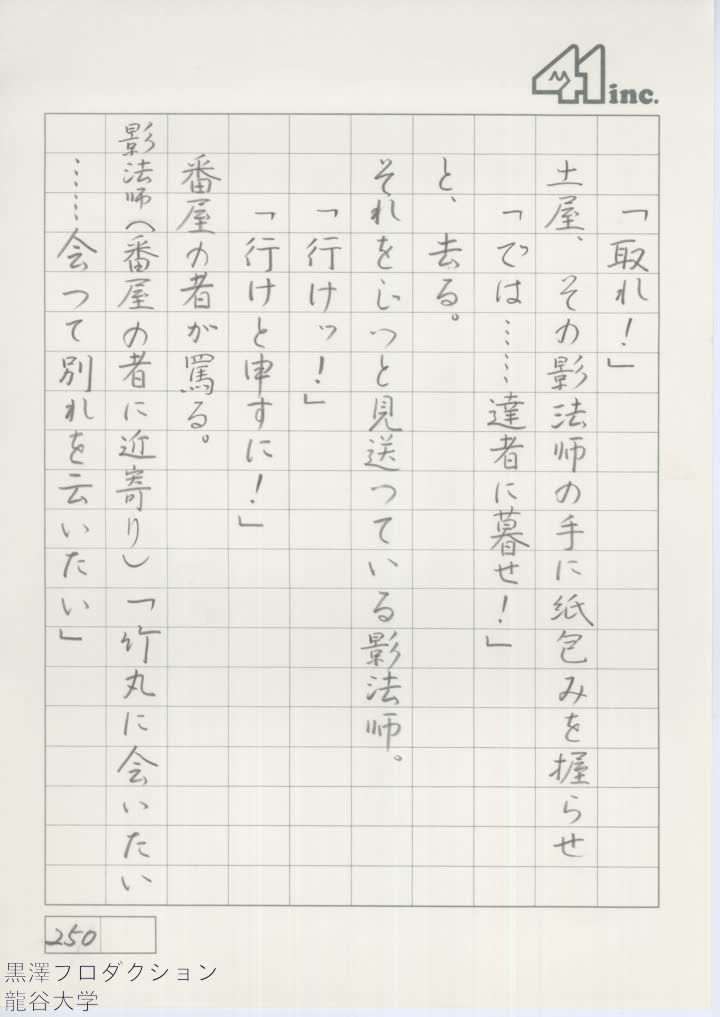 41 inc.
「取れ！」
土屋、その影法師の手に紙包みを握らせ
「では……達者に暮せ！」
と、去る。
それをじつと見送つている影法師。
「行けッ！」
「行けと申すに！」
番屋の者が罵る。
影法師（番屋の者に近寄り）「竹丸に会いたい
……会つて別れを云いたい」
250
黒澤フロダクション
龍谷大学